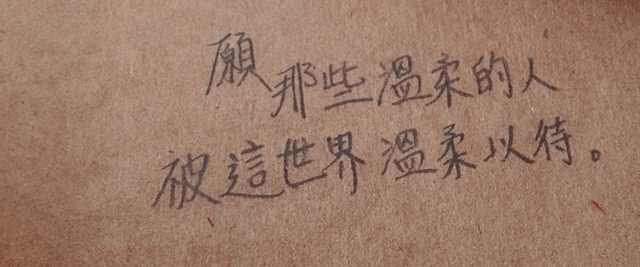 願那些溫柔的人
被這世界溫柔以待。